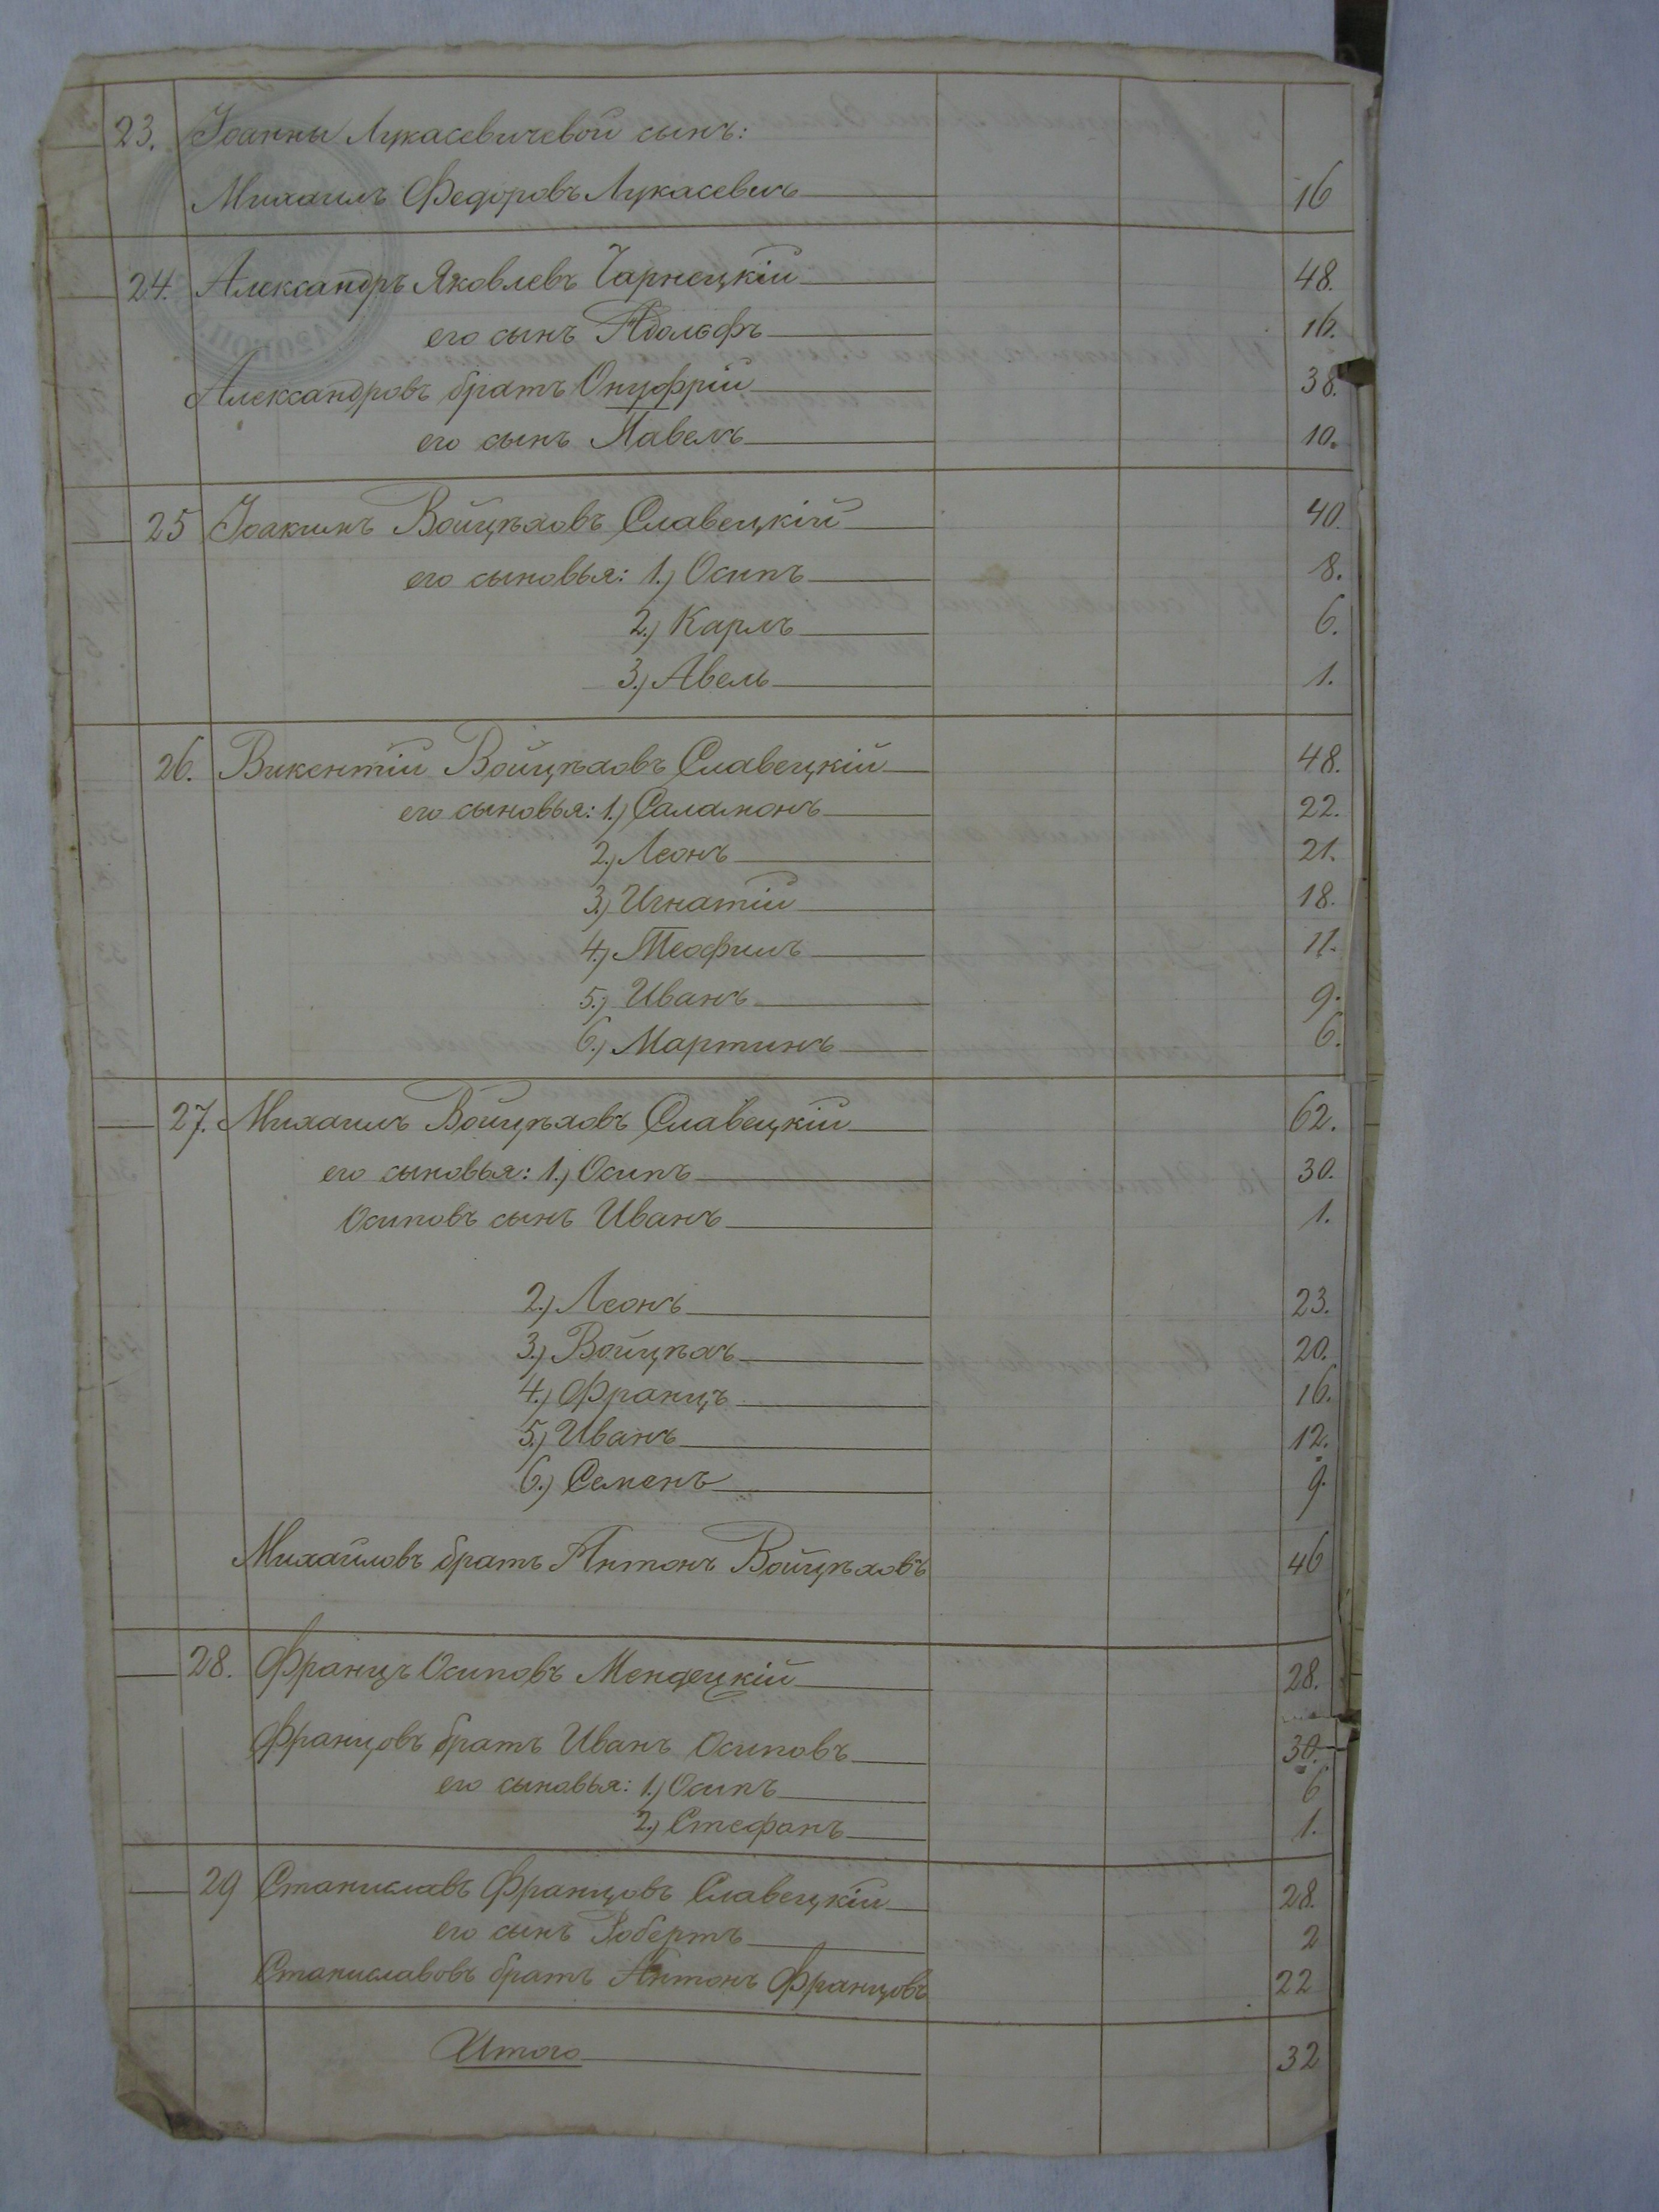 23. Іоанны Лукасевичевой сынъ:
Михаилъ Федоровъ Лукасевичъ 16
24. Александръ Яковлевъ Чарнецкій 48.
его сынъ Адольфъ 16.
Александровъ братъ Онуфрій 38.
его сынъ Павелъ 10.
25 Іоакимъ Войцѣховъ Славецкій 40.
его сыновья: 1.) Осипъ 8.
2.) Карлъ 6.
3.) Авель 1.
26. Викентій Войцѣховъ Славецкій 48.
его сыновья: 1.) Саламонъ 22.
2.) Леонъ 21.
3.) Игнатій 18.
4.) Теофилъ 11.
5.) Иванъ 9.
6.) Мартинъ 6.
27. Михаилъ Войцѣховъ Славецкій 62.
его сыновья: 1.) Осипъ 30.
Осиповъ сынъ Иванъ 1.
2.) Леонъ 23.
3.) Войцѣхъ 20.
4.) Францъ 16.
5.) Иванъ 12.
6.) Семенъ 9.
Михайловъ братъ Антонъ Войцѣховъ 46
28. Францъ Осиповъ Мендецкій 28.
Францовъ братъ Иванъ Осиповъ 30.
его сыновья: 1.) Осипъ 6
2.) Стефанъ 1.
29 Станиславъ Францовъ Славецкій 28.
его сынъ Робертъ 2
Станиславовъ братъ Антонъ Францовъ 22
Итого 32